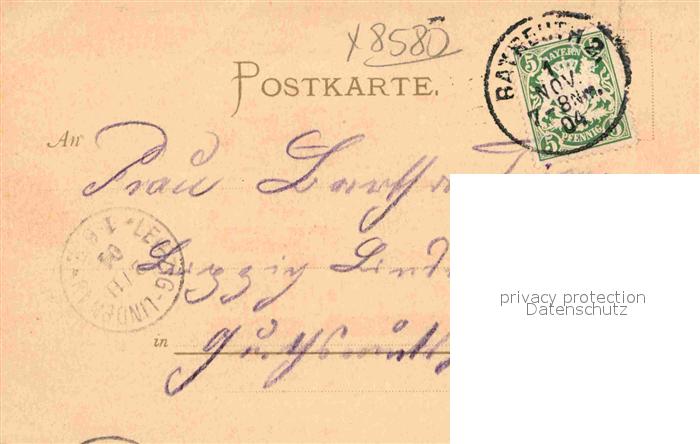 x8580
POSTKARTE.
BAYREUTH 2.
1
NOV.
7-8 Nm.
04
5 BAYERN 5
5 PFENNIG 5
An
Frau Bertha
LEIPZIG-LINDENAU
Leipzig Linde
in
privacy protection
Datenschutz